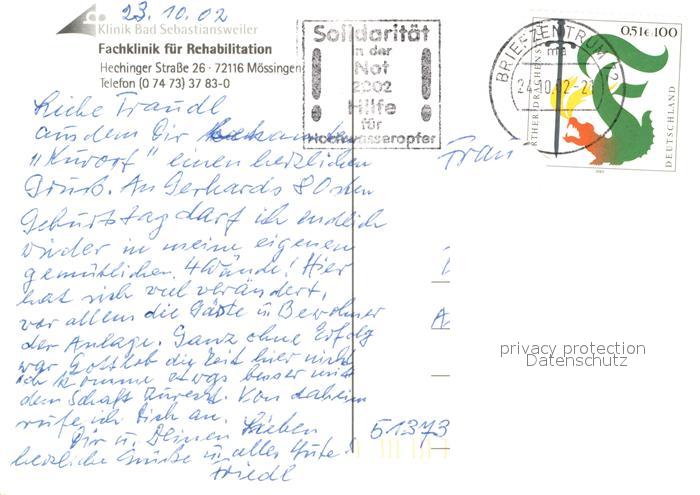 23.10.02
Klinik Bad Sebastiansweiler
Fachklinik für Rehabilitation
Hechinger Straße 26 · 72116 Mössingen
Telefon (0 74 73) 37 83-0
Solidarität
in der
Not
2002
Hilfe
für
Hochwasseropfer
BRIEFZENTRUM 72
24.10.02-21
0,51€ 100
DEUTSCHLAND
Liebe Traudl
aus dem Dir bekannten
"Kurort" einen herzlichen
Gruß. An Gerhards 80sten
Geburtstag darf ich endlich
wieder in meine eigenen
gemütlichen 4 Wände! Hier
hat sich viel verändert,
vor allem die Gäste u Bewohner
der Anlage. Ganz ohne Erfolg
war Gottlob die Zeit hier nicht
ich komme etwas besser mit
dem Schaft zurecht. Von daheim
rufe ich Dich an.
Dir u. Deinen Lieben
herzliche Grüße u alles Gute!
Friedl
Frau
51373
privacy protection
Datenschutz